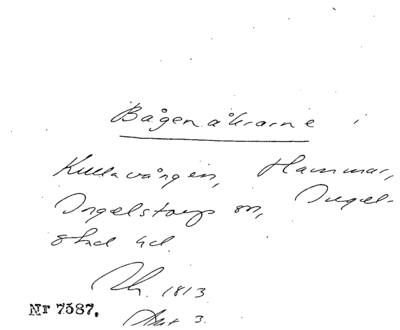 Bågenåkrarne i
Kullavången, Hammar,
Ingelstorps sn, Ingel-
stad hd.
1813
Akt 3.
Nr 7587.